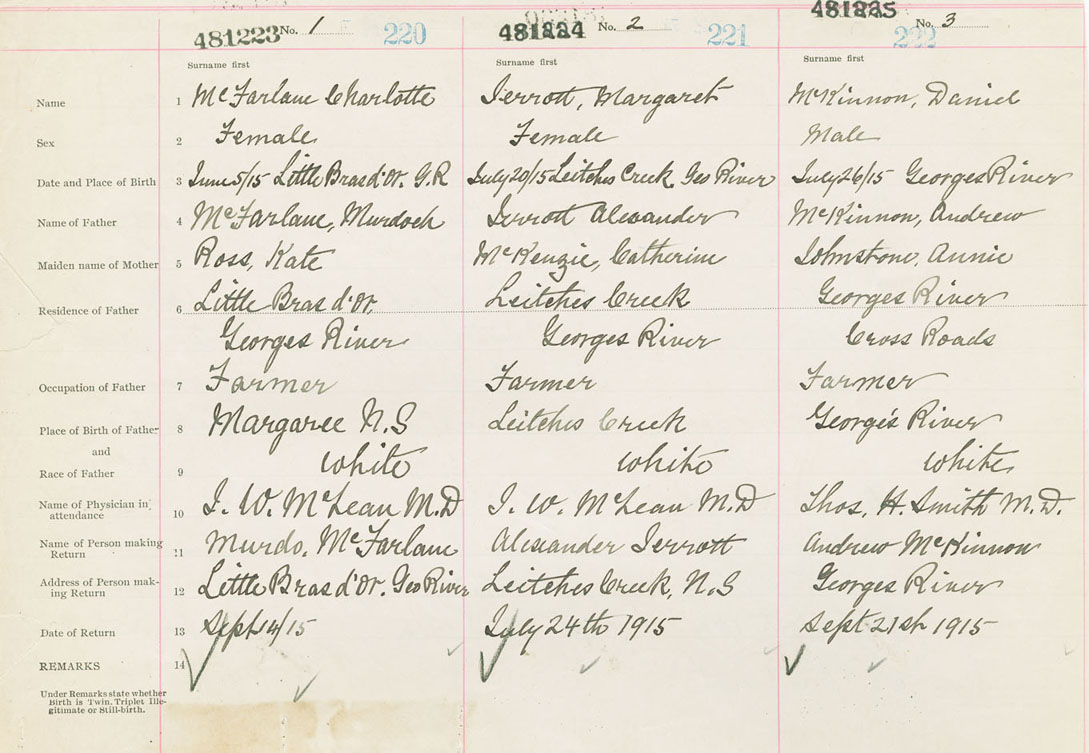 481223 No. 1 220 481224 No. 2 221 481225 No. 3 222
Surname first Surname first Surname first
Name 1 McFarlane Charlotte Jerrott, Margaret McKinnon, Daniel
Sex 2 Female Female Male
Date and Place of Birth 3 June 5/15 Little Bras d'Or. G.R July 20/15 Leitches Creek Geo River July 26/15 Georges River
Name of Father 4 McFarlane, Murdoch Jerrott Alexander McKinnon, Andrew
Maiden name of Mother 5 Ross, Kate McKenzie, Catherine Johnstone, Annie
Residence of Father 6 Little Bras d'Or. Leitches Creek Georges River
Georges River Georges River Cross Roads
Occupation of Father 7 Farmer Farmer Farmer
Place of Birth of Father 8 Margaree N.S Leitches Creek George's River
and
Race of Father 9 White White White
Name of Physician in attendance 10 J. W. McLean M.D J. W. McLean M.D Thos. H. Smith M.D.
Name of Person making Return 11 Murdo. McFarlane Alexander Jerrott Andrew McKinnon
Address of Person mak-
ing Return 12 Little Bras d'Or. Geo River Leitches Creek, N.S Georges River
Date of Return 13 Sept 14/15 July 24th 1915 Sept 21st 1915
REMARKS 14
Under Remarks state whether
Birth is Twin. Triplet Ille-
gitimate or Still-birth.